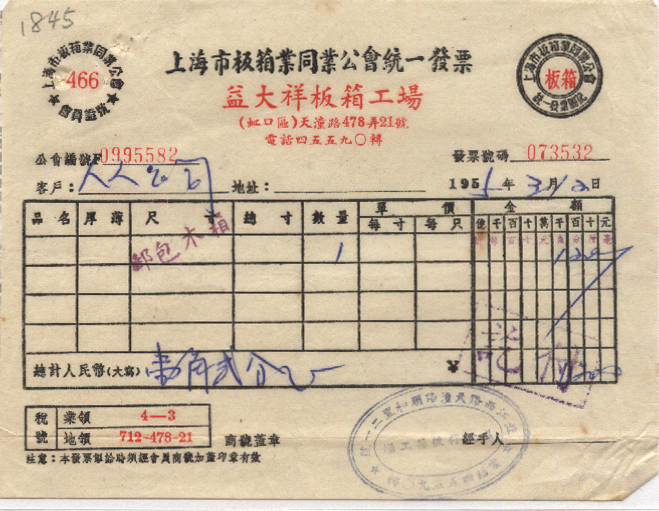 1845
上海市板箱業同業公會
466
上海市板箱業同業公會統一發票
上海市板箱業同業公會
板箱
統一發票
益大祥板箱工場
(虹口區)天潼路478弄21號
電話四五五九〇轉
公會編號F0995582
發票號碼 073532
客戶: 人人公司 地址: 1955年3月12日
品名 厚薄 尺寸 總寸 數量 單價 金額
每寸 每尺 億千百十萬千百十元
郵包木箱 1
總計人民幣(大寫) 壹角貳分 ¥
稅號 業領 4—3
地領 712-478-21
商號蓋章 經手人
注意:本發票製給時須經會員商號加蓋印章有效